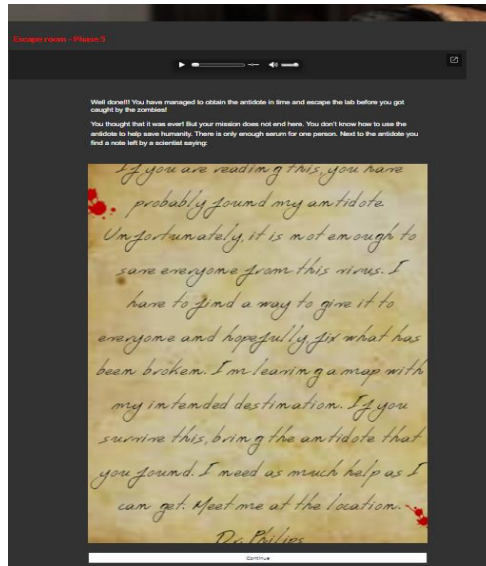 Escape room - Phase 5
Well done!!! You have managed to obtain the antidote in time and escape the lab before you got
caught by the zombies!
You thought that it was over! But your mission does not end here. You don't know how to use the
antidote to help save humanity. There is only enough serum for one person. Next to the antidote you
find a note left by a scientist saying:
If you are reading this, you have
probably found my antidote.
Unfortunately, it is not enough to
save everyone from this virus. I
have to find a way to give it to
everyone and hopefully fix what has
been broken. I'm leaving a map with
my intended destination. If you
survive this, bring the antidote that
you found. I need as much help as I
can get. Meet me at the location.
Dr. Philips
Continue